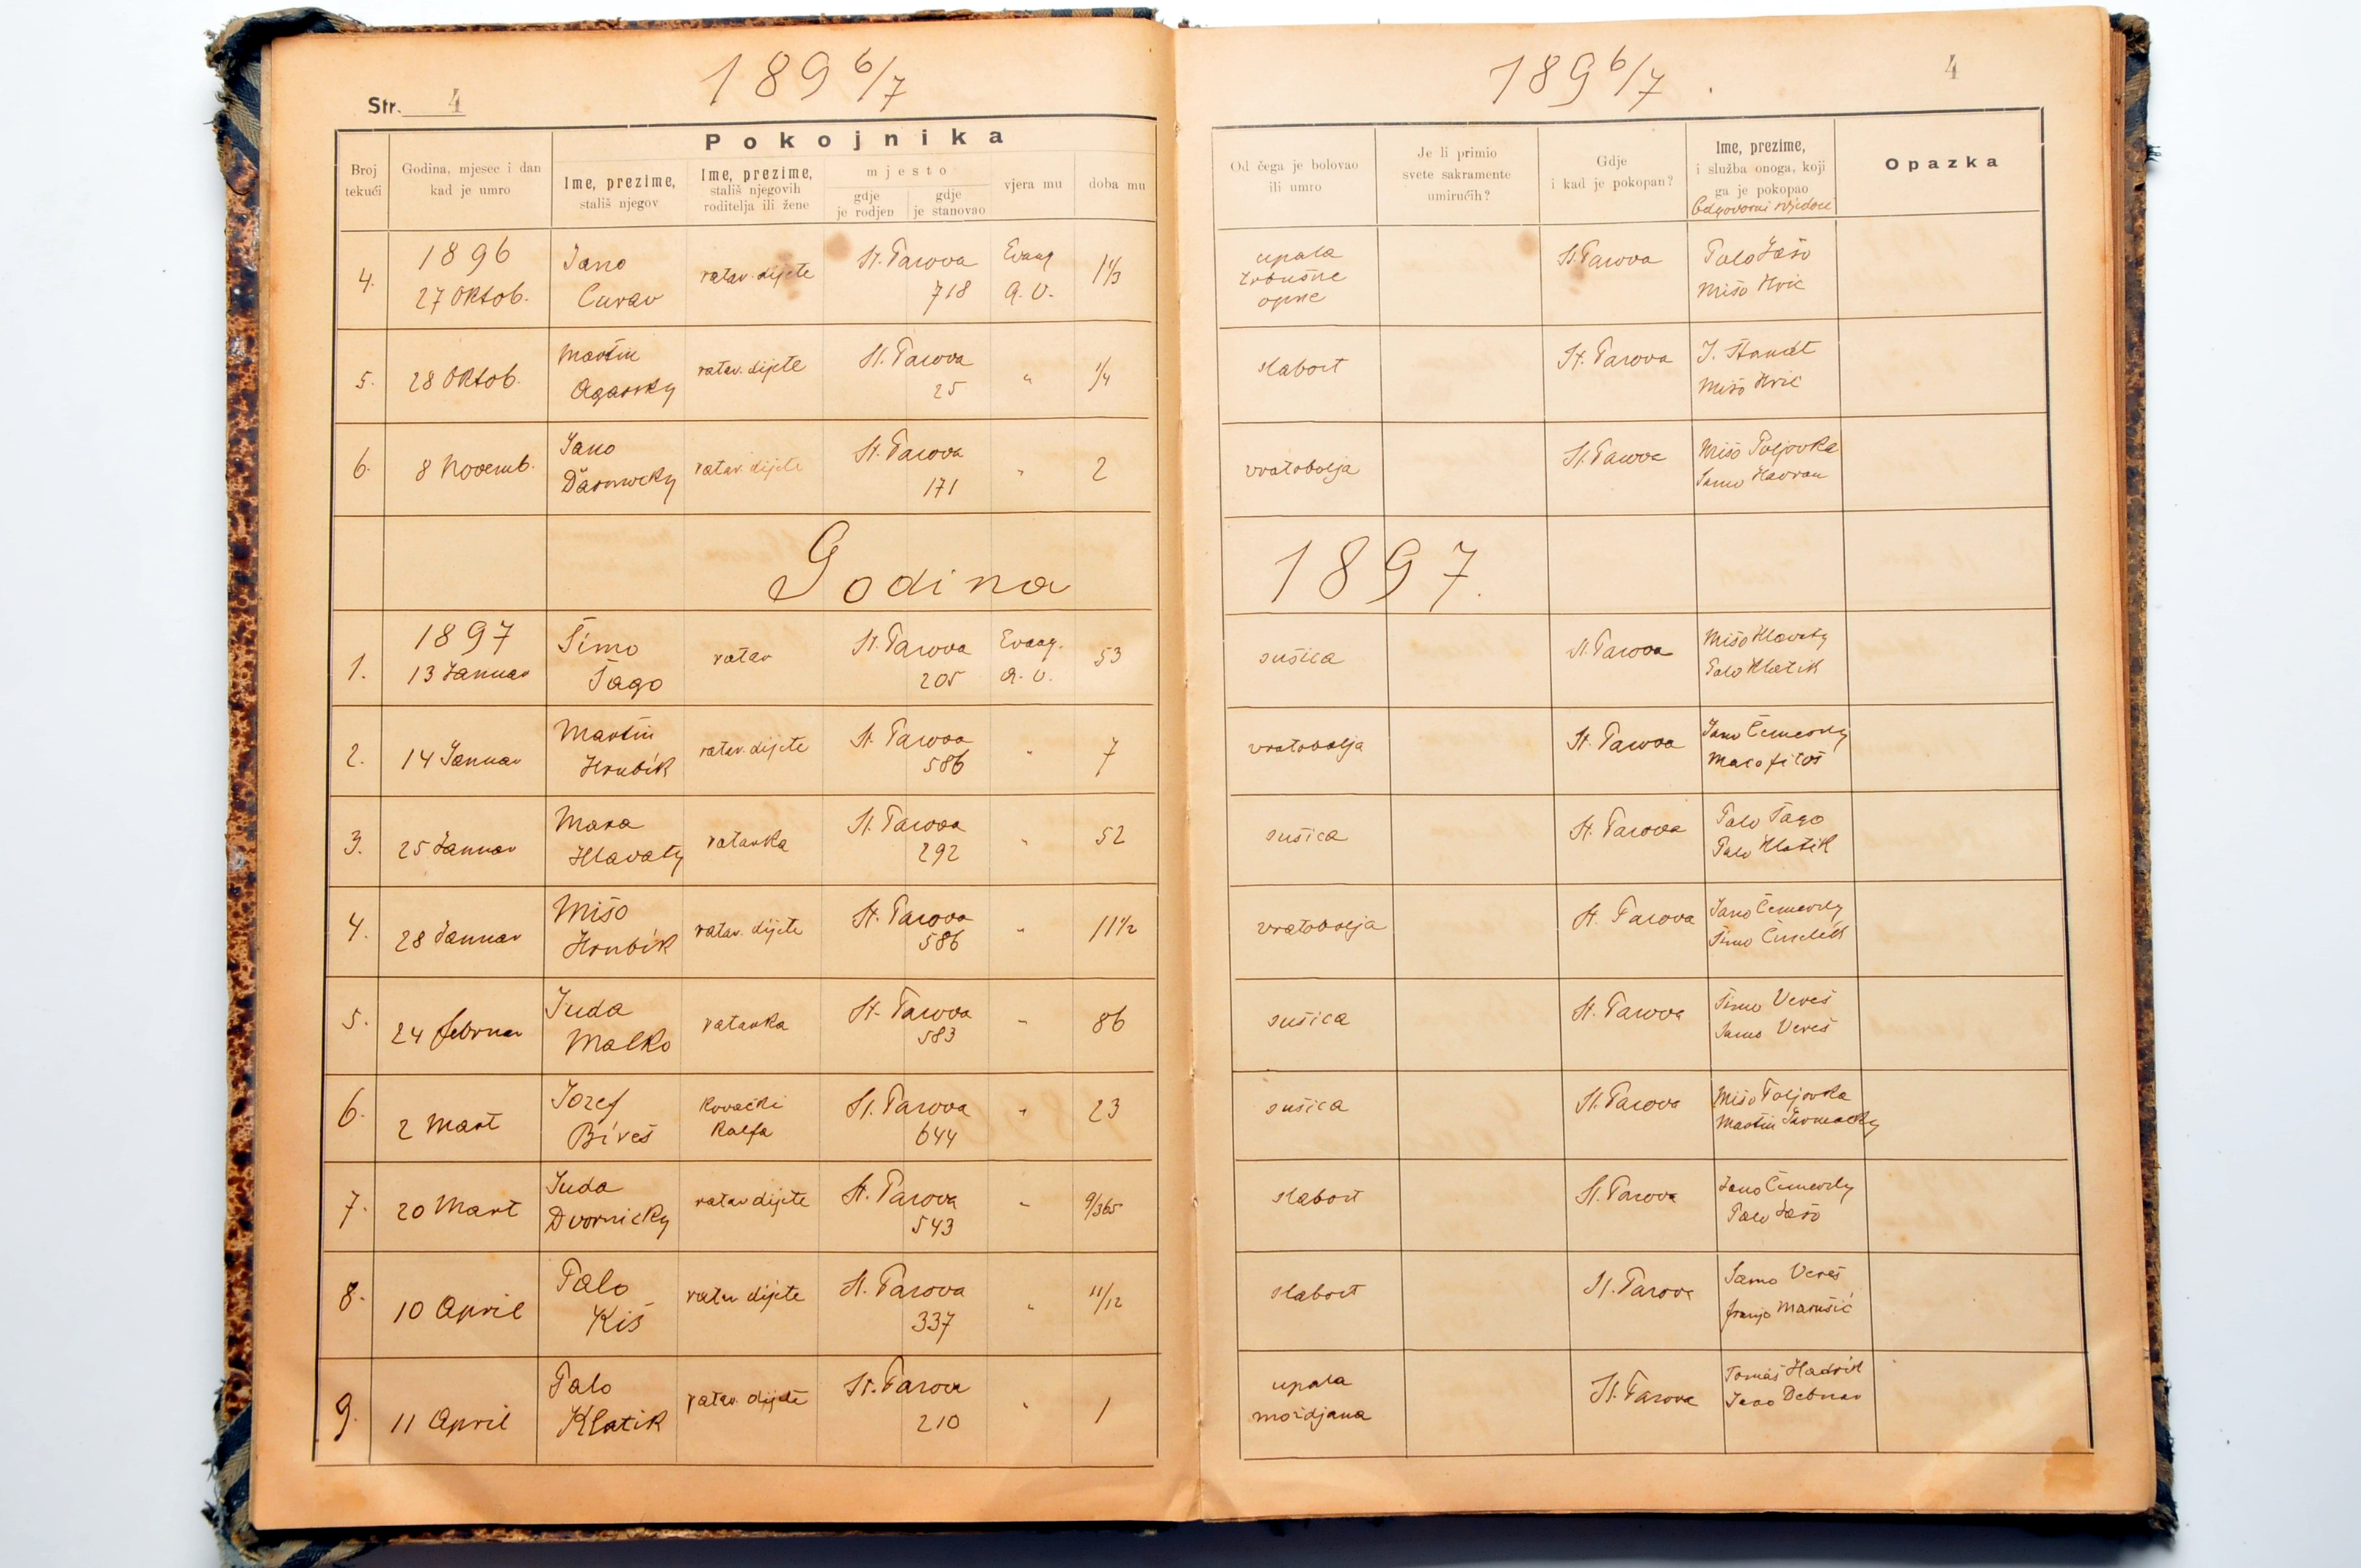 Str. 4
189 6/7
Pokojnika
Broj tekući
Godina, mjesec i dan kad je umro
Ime, prezime, stališ njegov
Ime, prezime, stališ njegovih roditelja ili žene
mjesto
gdje je rodjen
gdje je stanovao
vjera mu
doba mu
4.
1896
27 Oktob.
Jano
Čurar
ratar. dijete
St. Pazova
718
Evang
A. V.
5.
28 Oktob.
Martin
Agarsky
ratar. dijete
St. Pazova
25
"
1/4
6.
8 Novemb.
Jano
ratar. dijete
St. Pazova
171
"
2
Godina
1.
1897
13 Januar
Šimo
Ťago
ratar
St. Pazova
205
Evang.
A. V.
53
2.
14 Januar
Martin
Hrubik
ratar. dijete
St. Pazova
586
"
7
3.
25 Januar
Mara
Hlavaty
ratarka
St. Pazova
292
"
52
4.
28 Januar
Mišo
Hrubik
ratar. dijete
St. Pazova
586
"
11 1/2
5.
24 februar
Juda
Malko
ratarka
St. Pazova
583
"
86
6.
2 Mart
Jozef
Bireš
kovački
kalfa
St. Pazova
644
"
23
7.
20 Mart
Juda
Dvornicky
ratar dijete
St. Pazova
543
"
9/365
8.
10 April
Palo
Kiš
ratar dijete
St. Pazova
337
"
11/12
9.
11 April
Palo
Klatik
ratar. dijete
St. Pazova
210
"
1
189 6/7.
4
Od čega je bolovao ili umro
Je li primio svete sakramente umirućih?
Gdje i kad je pokopan?
Ime, prezime, i služba onoga, koji ga je pokopao
Odgovorni svjedoci
Opazka
upala
trbušne
opne
St. Pazova
Palo Jašo
Mišo Hric
slabost
St. Pazova
Mišo Hric
vratobolja
St. Pazova
Mišo Poljovka
Jano Havran
1897.
sušica
St. Pazova
Mišo Hlavaty
Palo Klatik
vratobolja
St. Pazova
Jano Čmerdy
sušica
St. Pazova
Palo Ťago
Palo Klatik
vratobolja
St. Pazova
Jano Čmerdy
sušica
St. Pazova
Šimo Vereš
Jano Vereš
sušica
St. Pazova
Mišo Poljovka
Martin
slabost
St. Pazova
Jano Čmerdy
Palo Jašo
slabost
St. Pazova
Samo Vereš
franjo Marušić
upala
moždjana
St. Pazova
Tomáš
Jano Debnar